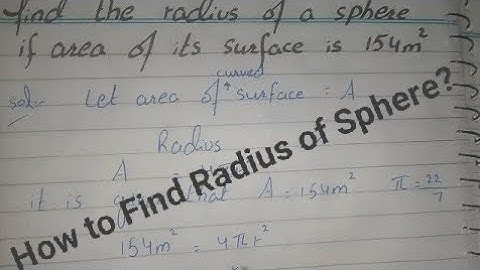 find the radius of a sphere
if area of its surface is 154m²
sol:- Let area of curved surface = A
Radius
A
it is that A = 154m² π = 22/7
154m² = 4πr²
How to Find Radius of Sphere?